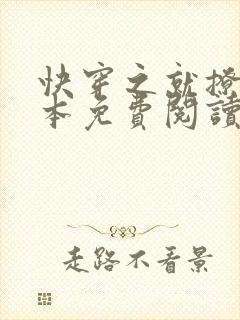 快穿之就撩
本免費閱讀
走路不看景